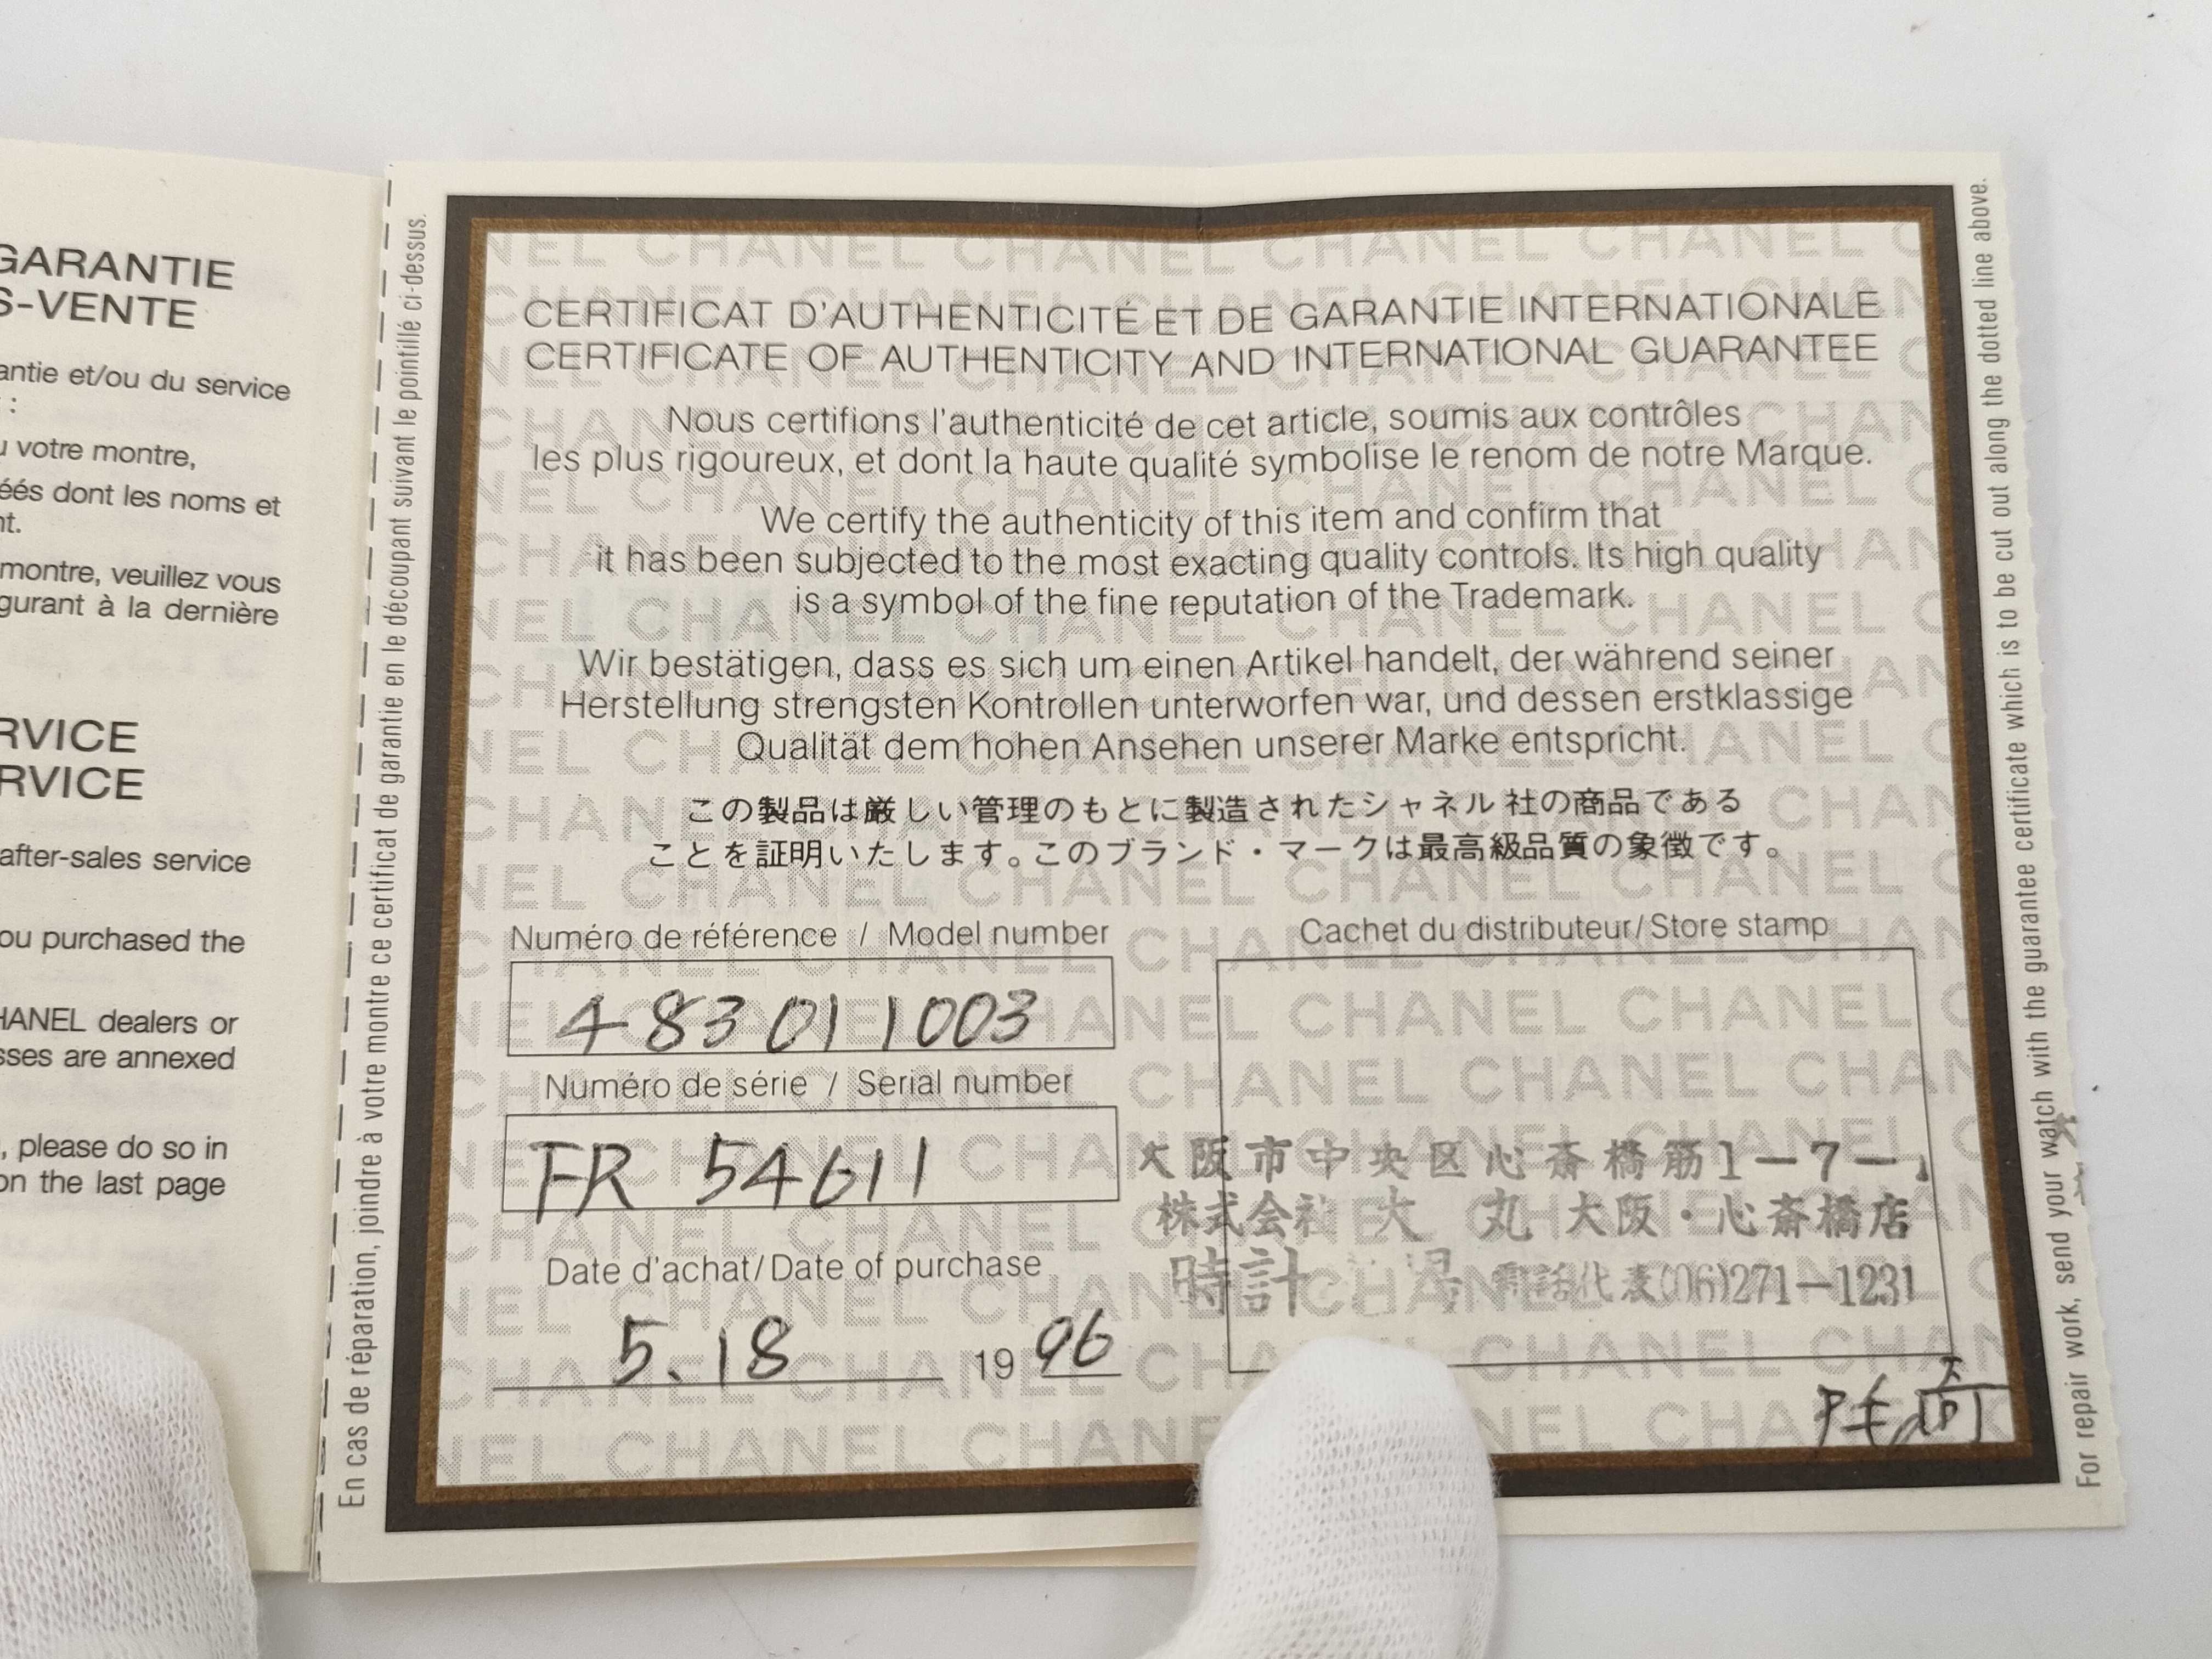 GARANTIE
S-VENTE
antie et/ou du service
:
u votre montre,
éés dont les noms et
nt.
montre, veuillez vous
gurant à la dernière
RVICE
RVICE
after-sales service
ou purchased the
HANEL dealers or
sses are annexed
, please do so in
on the last page
En cas de réparation, joindre à votre montre ce certificat de garantie en le découpant suivant le pointillé ci-dessus.
CERTIFICAT D'AUTHENTICITÉ ET DE GARANTIE INTERNATIONALE
CERTIFICATE OF AUTHENTICITY AND INTERNATIONAL GUARANTEE
Nous certifions l'authenticité de cet article, soumis aux contrôles
les plus rigoureux, et dont la haute qualité symbolise le renom de notre Marque.
We certify the authenticity of this item and confirm that
it has been subjected to the most exacting quality controls. Its high quality
is a symbol of the fine reputation of the Trademark.
Wir bestätigen, dass es sich um einen Artikel handelt, der während seiner
Herstellung strengsten Kontrollen unterworfen war, und dessen erstklassige
Qualität dem hohen Ansehen unserer Marke entspricht.
この製品は厳しい管理のもとに製造されたシャネル社の商品である
ことを証明いたします。このブランド・マークは最高級品質の象徴です。
Numéro de référence / Model number
483011003
Numéro de série / Serial number
FR 54611
Date d'achat/Date of purchase
5.18 1996
Cachet du distributeur/Store stamp
大阪市中央区心斎橋筋1-7-1
株式会社 大 丸 大阪・心斎橋店
時計 場 電話代表(06)271-1231
For repair work, send your watch with the guarantee certificate which is to be cut out along the dotted line above.
CHANEL